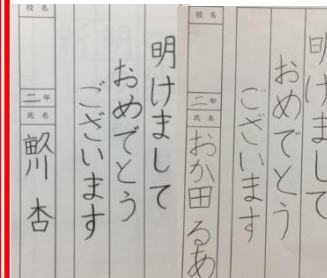 明けまして
おめでとう
ございます
校名
二年
氏名
杏
明けまして
おめでとう
ございます
校名
二年
氏名
おか田 るあ